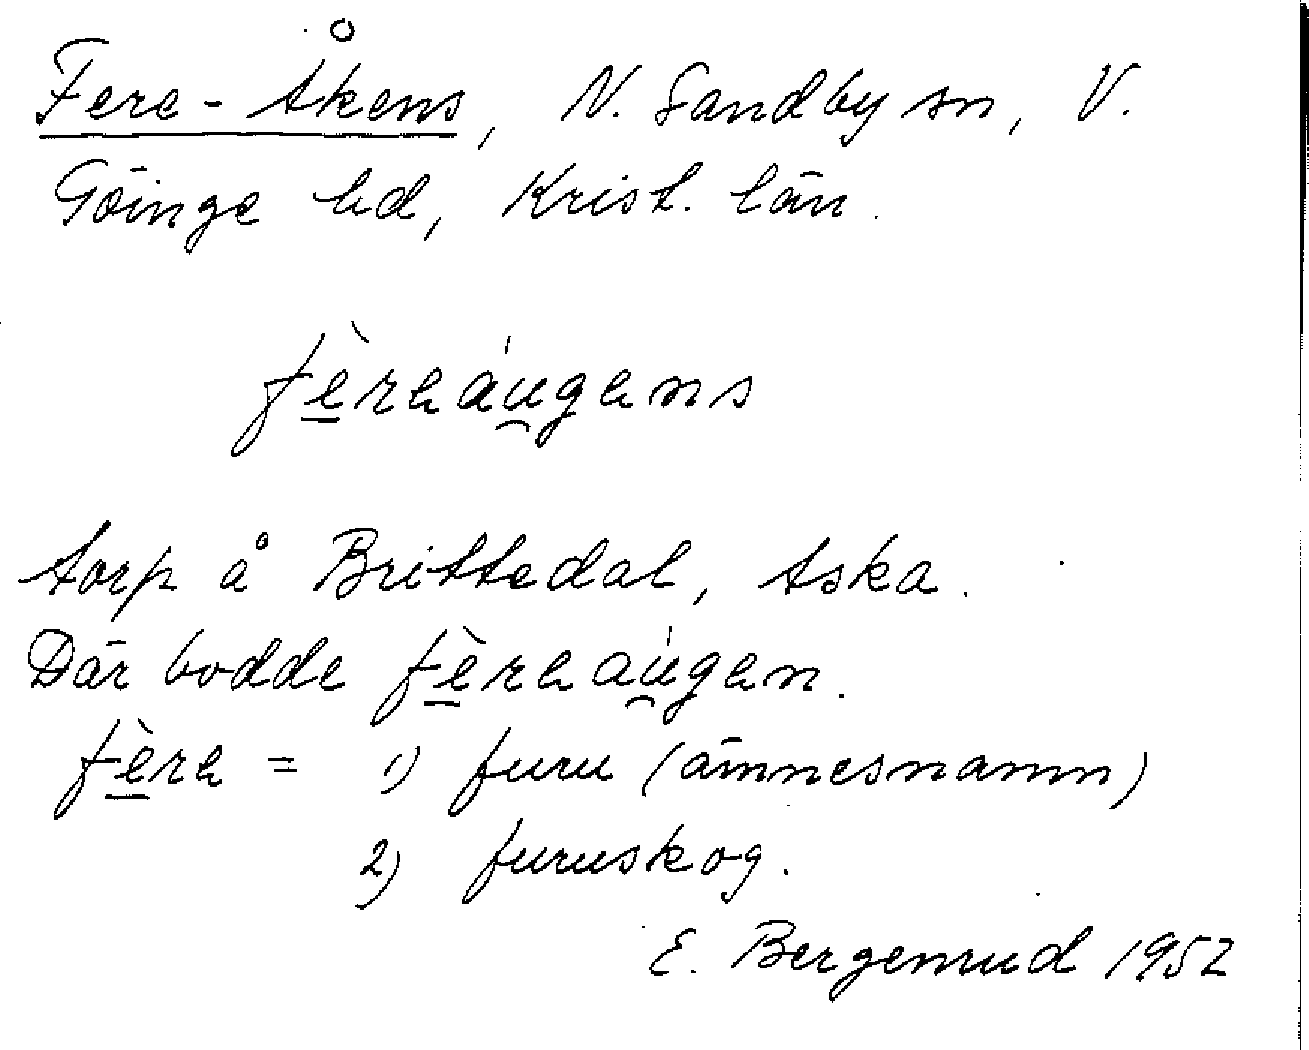 Fere-Åkens, N. Sandby sn, V.
Göinge hd, Krist. län.
fè̲rɐáu̯gɐns
torp å Brittedal, tska.
Där bodde fè̲rɐaú̯gɐn.
fè̲rɐ = 1) furu (ämnesnamn)
2) furuskog.
E. Bergenrud 1952